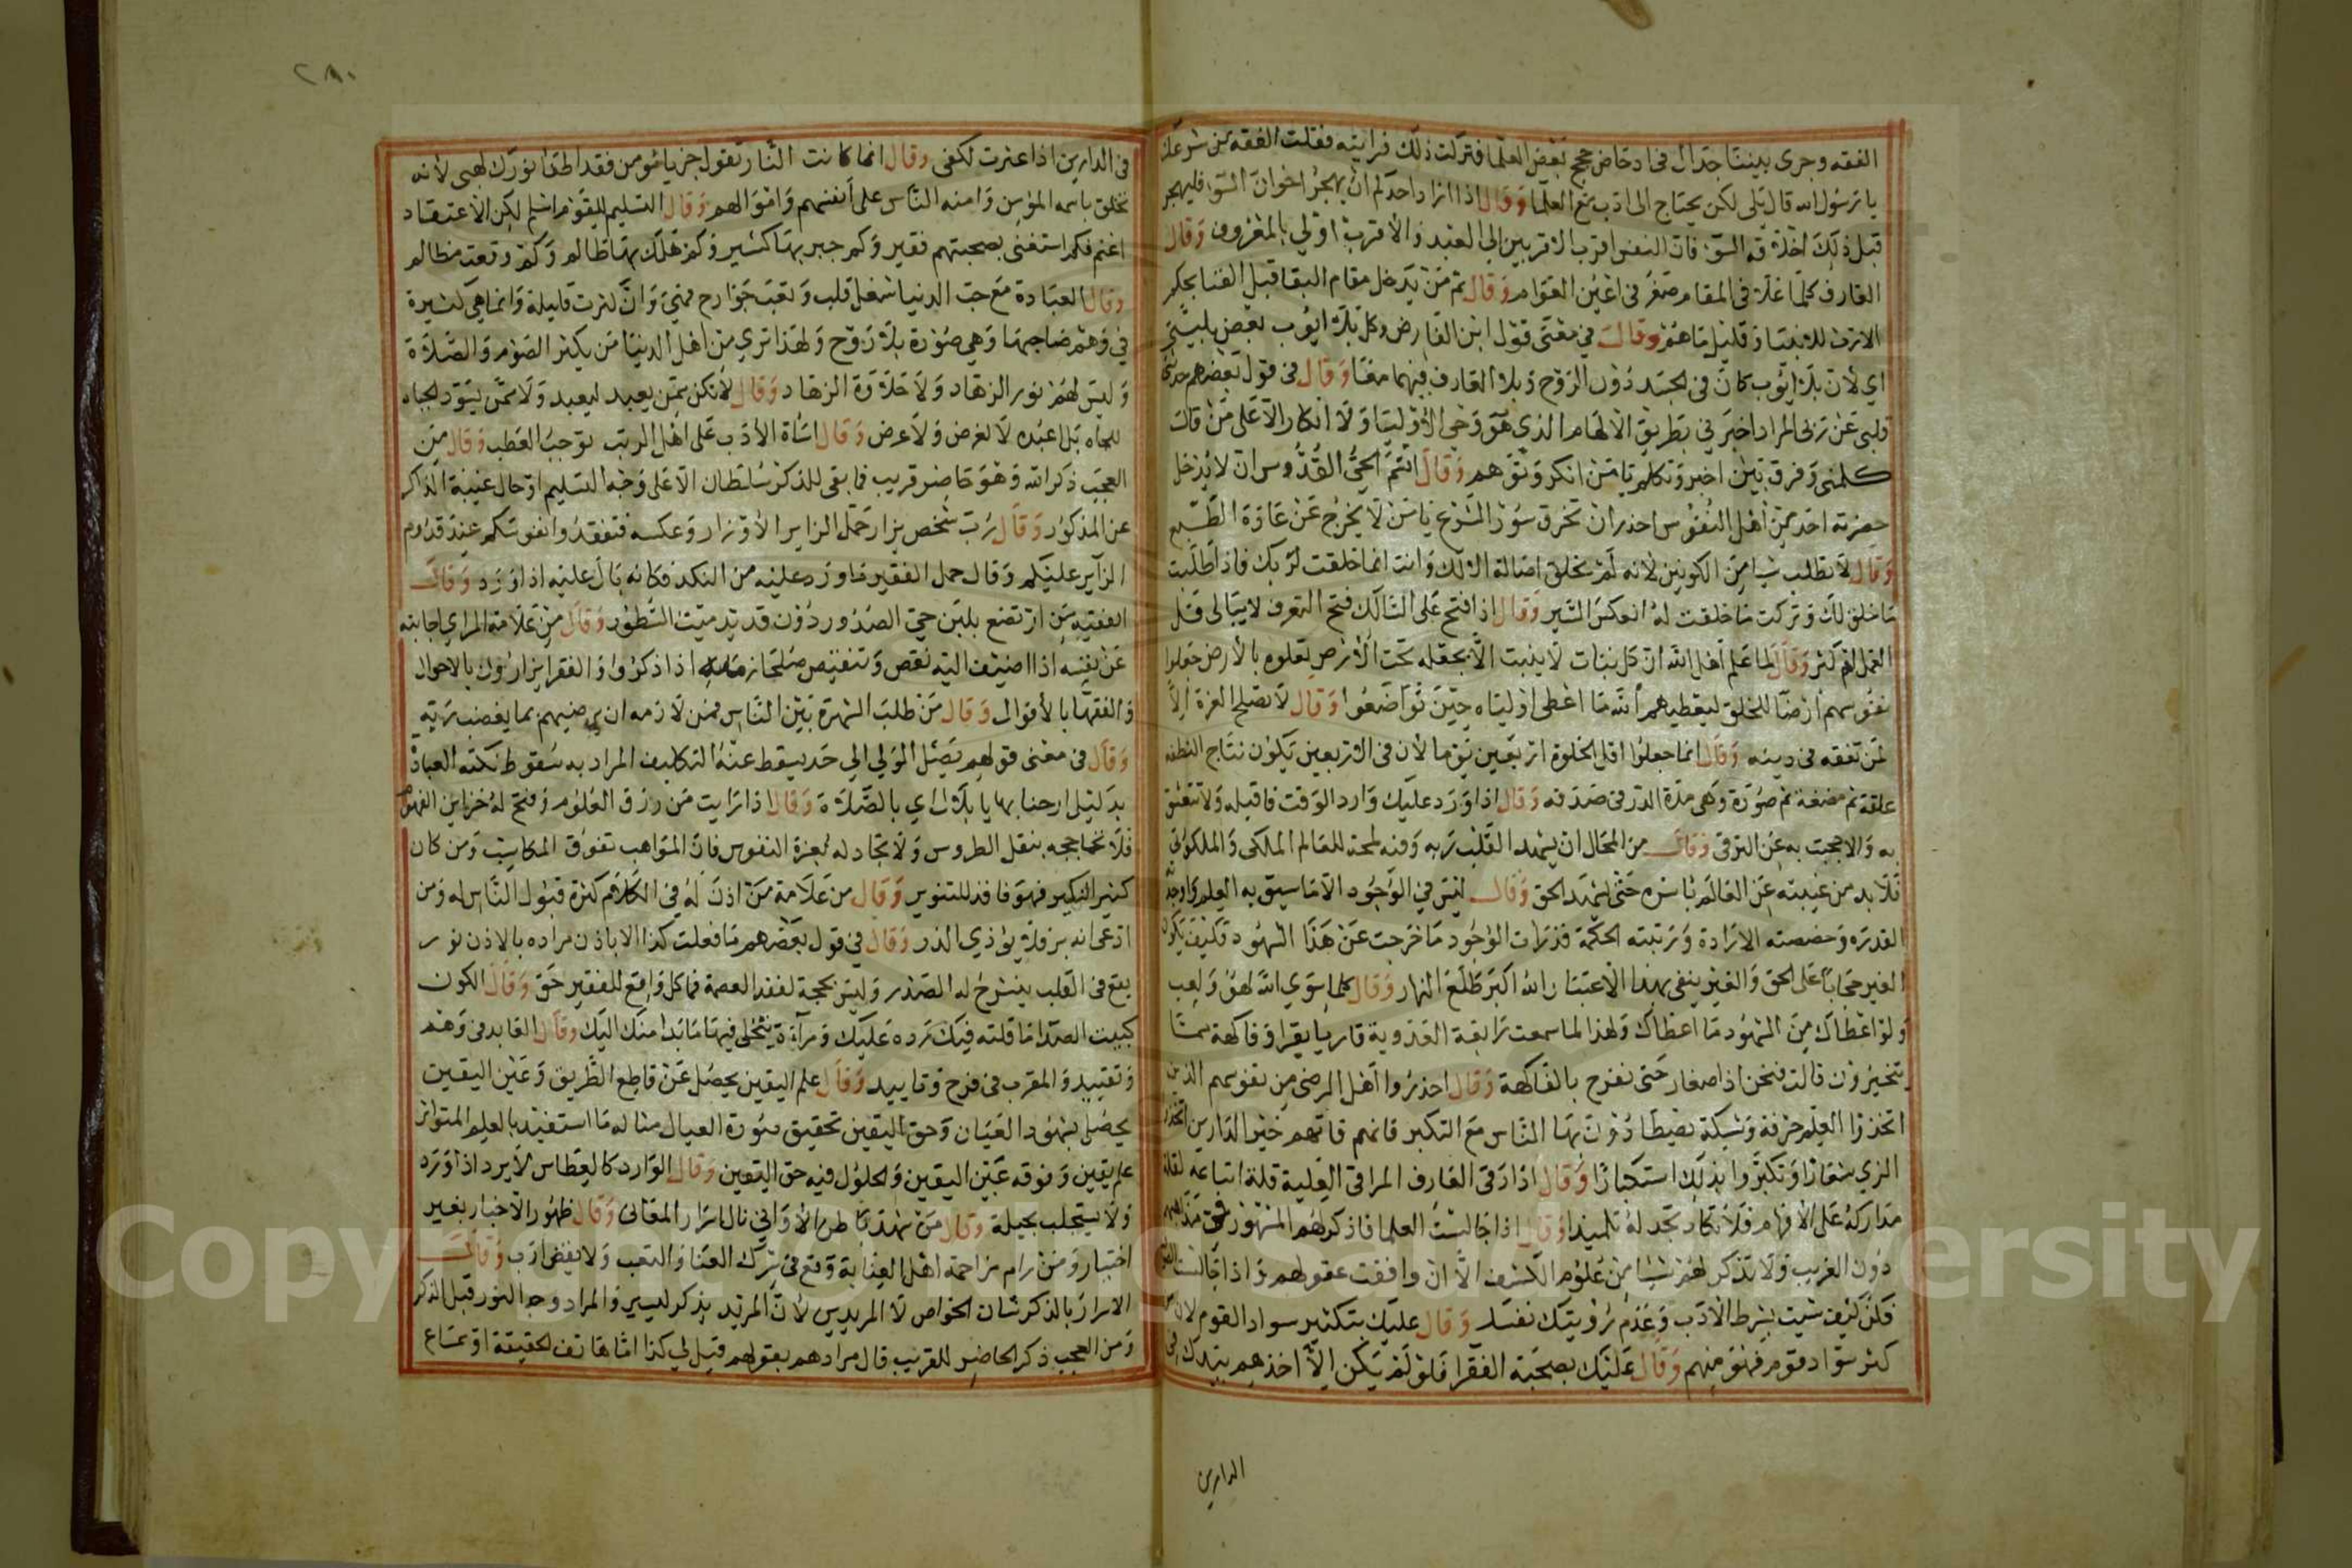 الفقه وجرى بيننا جدال فى ادحاض حجج بعض العلما فتركت ذلك فرايته فقلت الفقه من شرعك
يا رسول الله قال بلى لكن يحتاج الى ادب مع العلما وقال اذا اراد احدكم ان يهجر اخوان السوء فليهجر
قبل ذلك اخلاقه السوء فان النفس اقرب الاقربين الى العبد والاقرب اولى بالمعروف وقال
العارف كلما علا فى المقام صغر فى اعين العوام وقال ثم من يدخل مقام البقا قبل الفنا بحكم
الارث للانبيا وقليل ما هم وقال في معنى قول ابن الفارض وكل بلا ايوب بعض بليتي
اي لان بلا ايوب كان فى الجسد دون الروح وبلا العارف فيهما معا وقال فى قول بعضهم حدثنى
قلبى عن ربى المراد اخبرني بطريق الالهام الذي هو وحى الاوليا ولا انكار الا على من قال
كلمنى وفرق بين اخبر وتكلم يا من انكر وتوهم وقال انتم الحي القدوس ان لا يدخل
حضرته احد من اهل النفوس احذر ان تخرق سور الشرع يا من لا يخرج عن عادة الطبع
وقال لا تطلب شيا من الكونين لانه لم يخلق اصالة الا لك وانت انما خلقت لربك فاذا طلبت
ما خلق لك وتركت ما خلقت له انعكس السير وقال اذا فتح على السالك فتح التعرف لا يبالى قل
العمل ام كثر وقال لما علم اهل الله ان كل نبات لا ينبت الا بجعله تحت الارض تعلوه بالارض جعلوا
نفوسهم ارضا للخلق ليعطيهم الله ما اعطى اولياه حين تواضعوا وقال لا تصلح العزة الا
لمن تفقه فى دينه وقال انما جعلوا اقل الخلوة اربعين يوما لان فى الاربعين يكون نتاج النطفه
علقة ثم مضغة ثم صورة وهى مدة الدر فى صدفه وقال اذا ورد عليك وارد الوقت فاقبله ولا تتعشق
به والا حجبت به عن الترقى وقال من المحال ان يشهد القلب ربه وفيه لمحة للعالم الملكى والملكوتى
فلا بد من غيبته عن العالم باسره حتى يشهد الحق وقال ليس في الوجود الا ما سبق به العلم واوجدته
القدره وخصصته الارادة ورتبته الحكمة فذرات الوجود ما خرجت عن هذا الشهود فكيف يكون
الغير حجابا على الحق والغير ينفى بهذا الاعتبار الله اكبر طلع النهار وقال كلما سوي الله لهو ولعب
ولو اعطاك من الشهود ما اعطاك ولهذا لما سمعت رابعة العدوية قاريا يقرا وفاكهة مما
يتخيرون قالت فنحن اذا صغار حتى نفرح بالفاكهة وقال احذروا اهل الرضى من نفوسهم الذين
اتخذوا العلم حرفة وشبكة يصطادون بها الناس مع التكبر فانهم فاتهم خير الدارين اتخذوا
الزي شعارا وتكبروا بذلك استكبارا وقال اذا رقى العارف المراقى العلية قلة اتباعه لقلة
مداركه على الافهام فلا تكاد تجد له تلميذا وقال اذا جالست العلما فاذكر لهم المشهور فى مذاهبهم
دون الغريب ولا تذكر لهم شيا من علوم الكشف الا ان وافقت عقولهم واذا جالست
فكن كيف شيت بشرط الادب وعدم رؤيتك نفسك وقال عليك بتكثير سواد القوم لان من
كثر سواد قوم فهو منهم وقال عليك بصحبة الفقرا فلو لم يكن الا اخذهم بيدك فى
الدارين
٢٨٠
فى الدارين اذا عثرت لكفى وقال انما كانت النار تقول جز يا مومن فقد اطفا نورك لهبى لانه
تخلق باسمه المؤمن وامنه الناس على انفسهم واموالهم وقال التسليم للقوم اسلم لكن الاعتقاد
اغنم فكم استغنى بصحبتهم فقير وكم جبر بها كسير وكم هلك بها ظالم وكم رفعت مظالم
وقال العبادة مع حب الدنيا شغل قلب وتعب جوارح فهي وان كثرت قليلة وانما هي كثيرة
في وهم صاحبها وهي صورة بلا روح ولهذا تري من اهل الدنيا من يكثر الصوم والصلاة
وليس لهم نور الزهاد ولا حلاوة الزهاد وقال لا تكن ممن يعبد ليعبد ولا ممن يسود لجباه
للجاه بل اعبده لا لغرض ولا عرض وقال اساة الادب على اهل الرتب توجب العطب وقال من
العجب ذكر الله وهو حاضر قريب فما بقى للذكر سلطان الا على وجه التسليم او حال غيبة الذاكر
عن المذكور وقال رب شخص يزار حمل الزاير الاوزار وعكسه فتفقدوا نفوسكم عند قدوم
الزاير عليكم وقال حمل الفقير ما ورد عليه من النكد فكانه بال عليه اذا ورد وقال
الفقيه من ارتضع بلبن حي الصدور دون قديد ميت السطور وقال من علامة المراي اجابته
عن نفسه اذا اضيف اليه نقص وتنقيص صلحا زمانه اذا ذكروا والفقرا يزارون بالاحوال
والفقها بالاقوال وقال من طلب الشهرة بين الناس فمن لازمه ان يرضيهم بما يغضب ربه
وقال فى معنى قولهم يصل الولي الي حد يسقط عنه التكليف المراد به سقوط كلفة العبادة
بدليل ارحنا بها يا بلال اي بالصلاة وقال اذا رايت من رزق العلوم وفتح له خزاين الفهوم
فلا تحاججه بنقل الطروس ولا تجادله بعزة النفوس فان المواهب تفوق المكاسب ومن كان
كثير النكير فهو فاقد للتنوير وقال من علامة من اذن له في الكلام كثرة قبول الناس له ومن
ادعى انه يؤذي الذر وقال في قول بعضهم ما فعلت كذا الا باذن مراده بالاذن نور
يقع فى القلب ينشرح له الصدر وليس بحجة لفقد العصمة فما كل واقع للفقير حق وقال الكون
كبيت الصدا ما قلته فيك رده عليك ومرآة يتجلى فيها ما بدا منك اليك وقال العابد فى وهم
وتقييد والمقرب فى فرح وتاييد وقال علم اليقين يحصل عن قاطع الطريق وعين اليقين
يحصل بشهود العيان وحق اليقين تحقيق صورة العيان مثاله ما استفيد بالعلم المتواتر
علم يقين وفوقه عين اليقين والحلول فيه حق اليقين وقال الوارد كالعطاس لا يرد اذا ورد
ولا يستجلب بحيلة وقال من شهد باطن الاواني نال اسرار المعانى وقال ظهور الاخبار بغير
اختيار ومن رام مزاحمة اهل العناية وقع فى شرك العنا والتعب ولا يقض ارب وقال
الاسرار بالذكر شان الخواص لا المريدين لان المريد يذكر ليسير والمراد وجد النور قبل الذكر
ومن العجب ذكر الحاضر للقريب قال مرادهم بقولهم قيل لي كذا اما هاتف الحقيقة او سماع